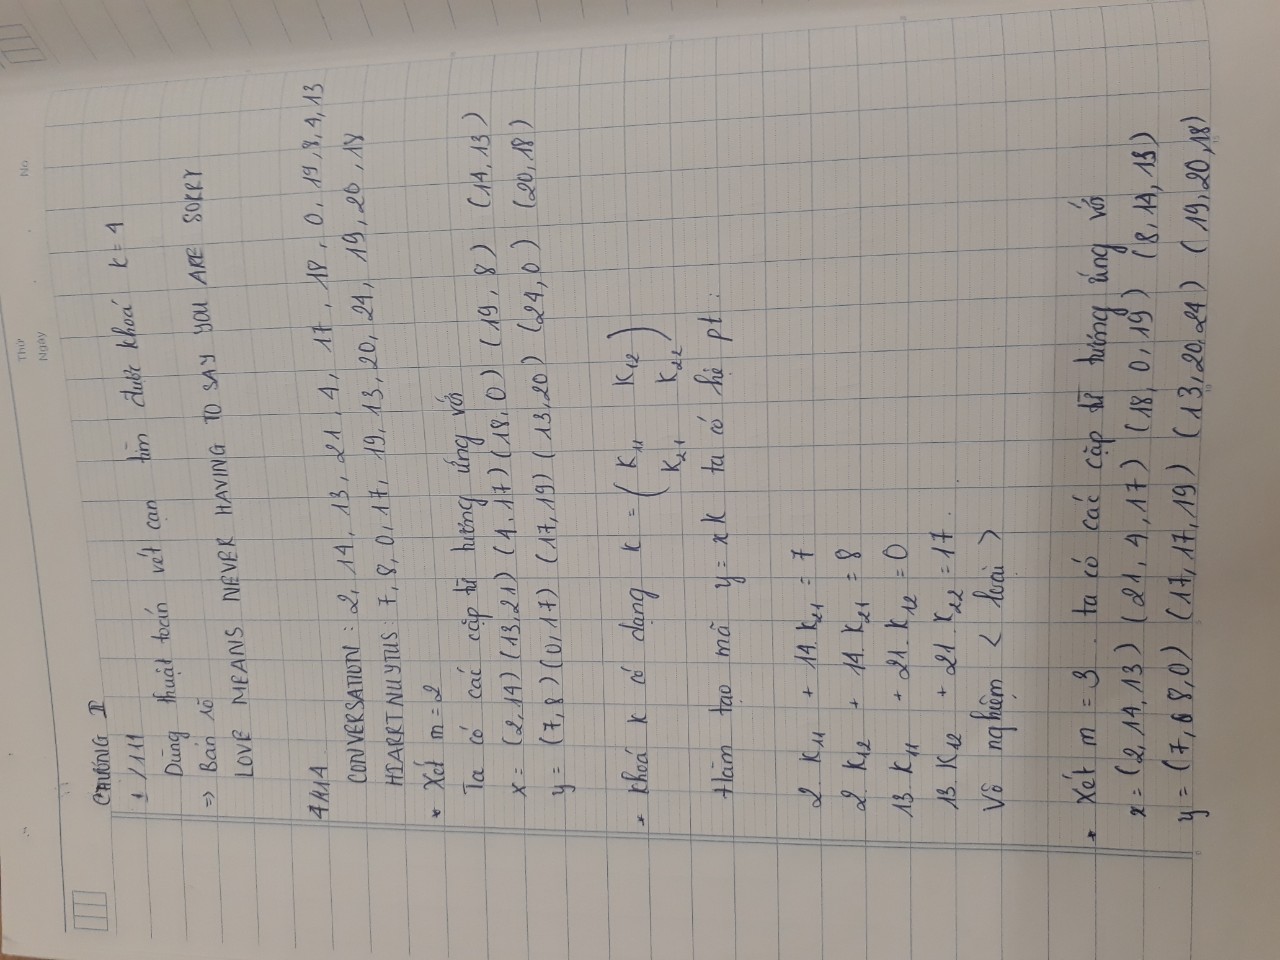 Thứ
Ngày
No
CHƯƠNG II
1/111
Dùng thuật toán vét cạn tìm được khoá k = 4
=> Bản rõ
LOVE MEANS NEVER HAVING TO SAY YOU ARE SORRY
CONVERSATION : 2, 14, 13, 21, 4, 17, 18, 0, 19, 8, 4, 13
HIARRTNUYTUS : 7, 8, 0, 17, 17, 19, 13, 20, 24, 19, 20, 18
* Xét m = 2
Ta có các cặp từ tương ứng với
x = (2,14) (13,21) (4,17) (18,0) (19,8) (14,13)
y = (7,8) (0,17) (17,19) (13,20) (24,0) (20,18)
* Khoá K có dạng K = ( K11 K12
K21 K22 )
Hàm tạo mã y = xK ta có hệ pt :
2. K11 + 14. K21 = 7
2. K12 + 14. K21 = 8
13. K11 + 21. K12 = 0
13. K12 + 21. K22 = 17.
Vô nghiệm < loại >
* Xét m = 3. ta có các cặp từ tương ứng với
x = (2, 14, 13) (21, 4, 17) (18, 0, 19) (8, 14, 13)
y = (7, 8, 0) (17, 17, 19) (13, 20, 24) (19, 20, 18)